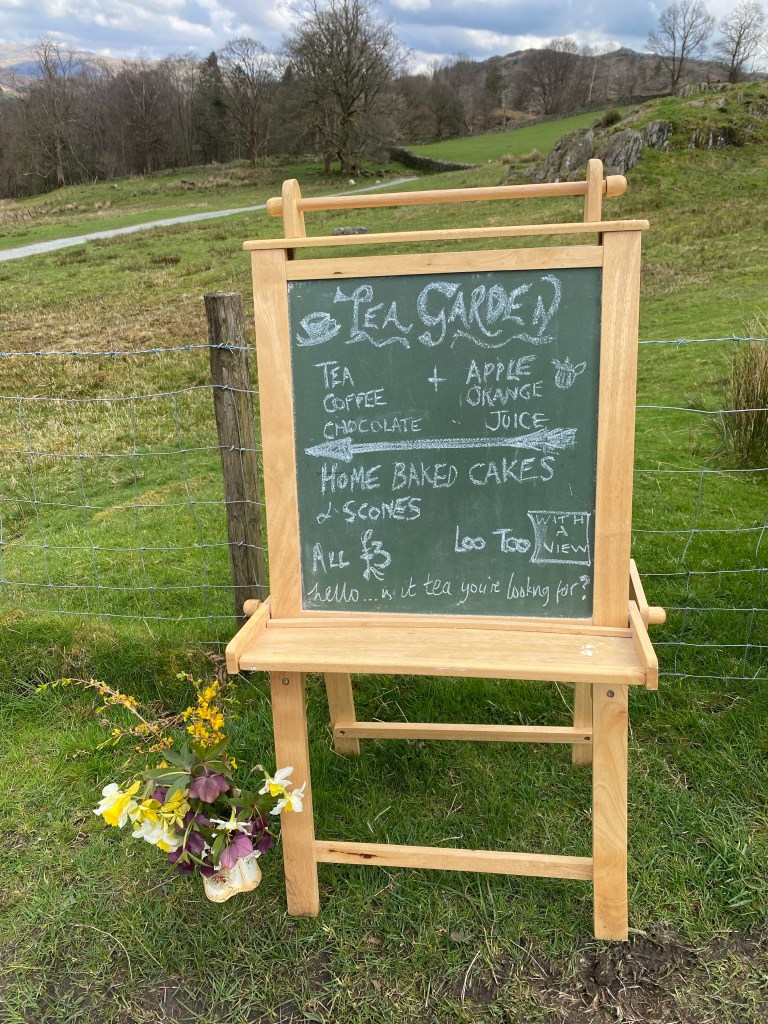 TEA GARDEN
TEA + APPLE
COFFEE ORANGE
CHOCOLATE JUICE
HOME BAKED CAKES
& SCONES
ALL £3 LOO TOO WITH A VIEW
hello... is it tea you're looking for?